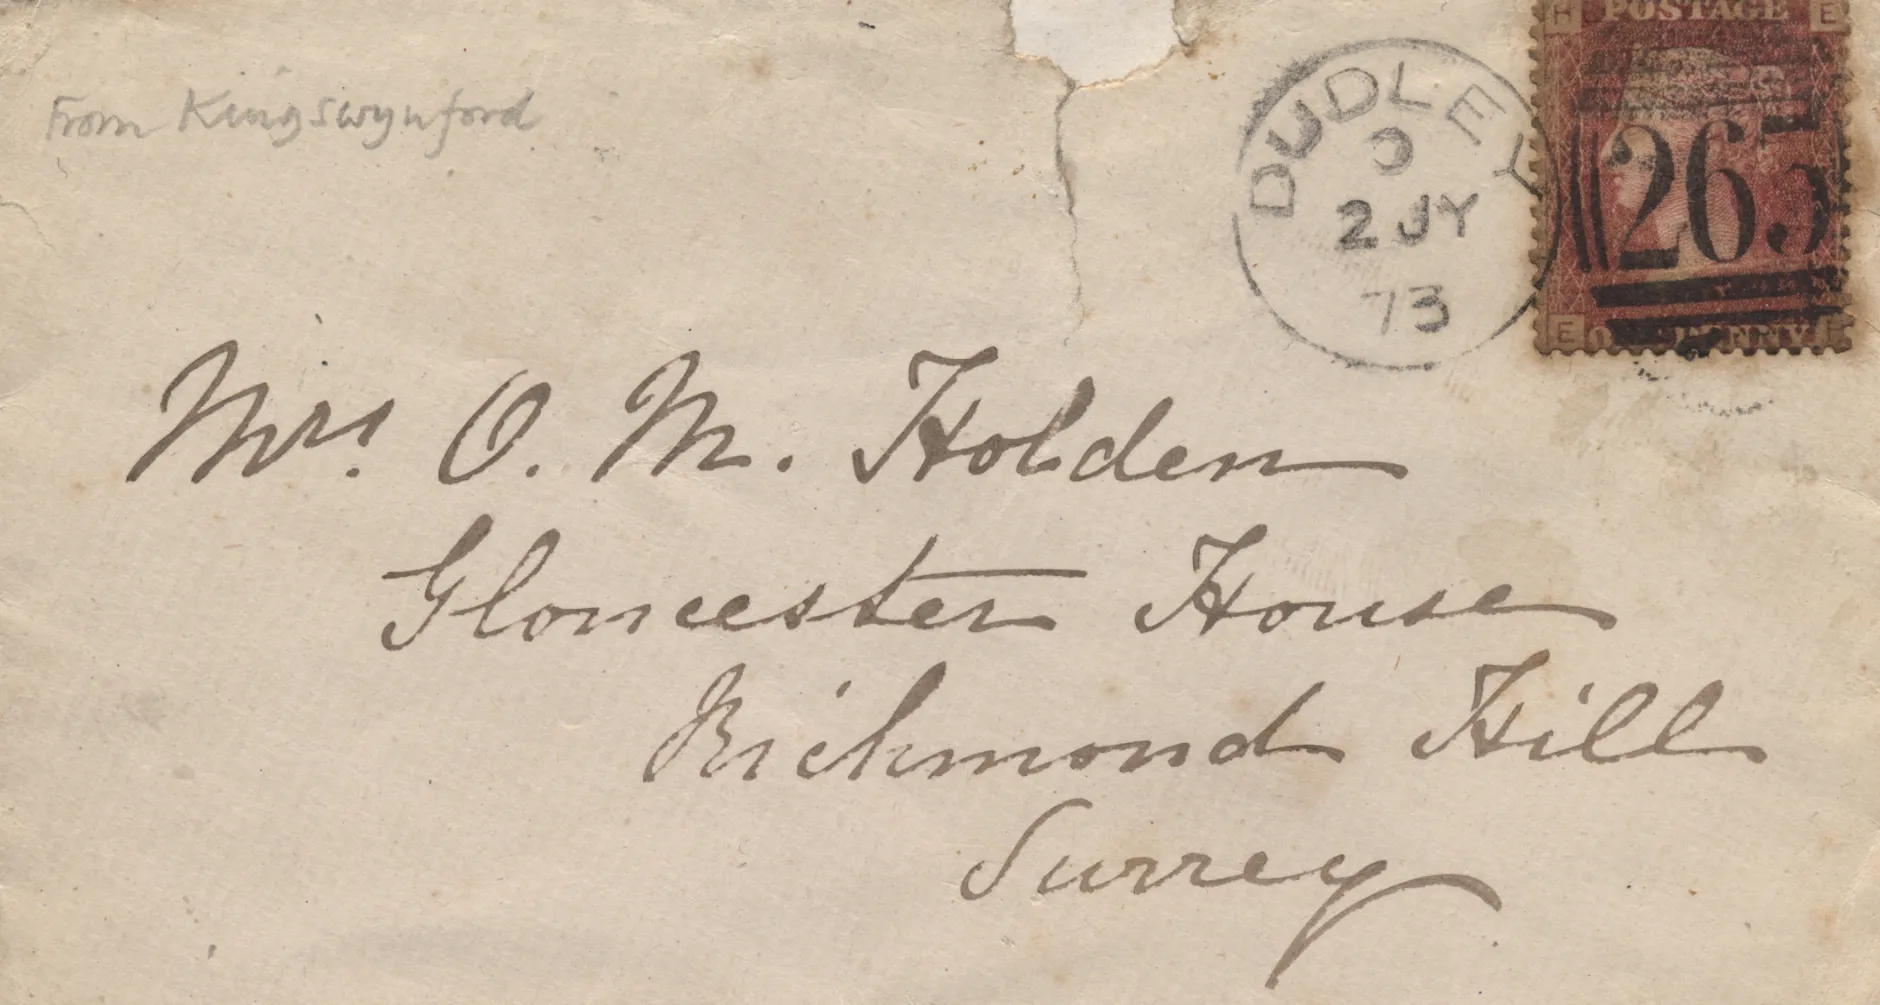 From Kingswynford
DUDLEY
2 JY
73
H POSTAGE E
265
E ONE PENNY
Mrs. O. M. Holden
Gloucester House
Richmond Hill
Surrey